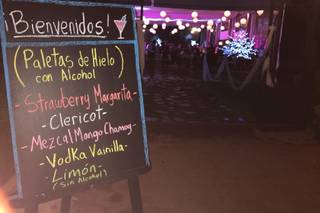 ¡Bienvenidos!
(Paletas de Hielo)
con Alcohol
- Strawberry Margarita -
- Clericot -
- Mezcal Mango Chamoy -
- Vodka Vainilla -
- Limón -
(Sin Alcohol)